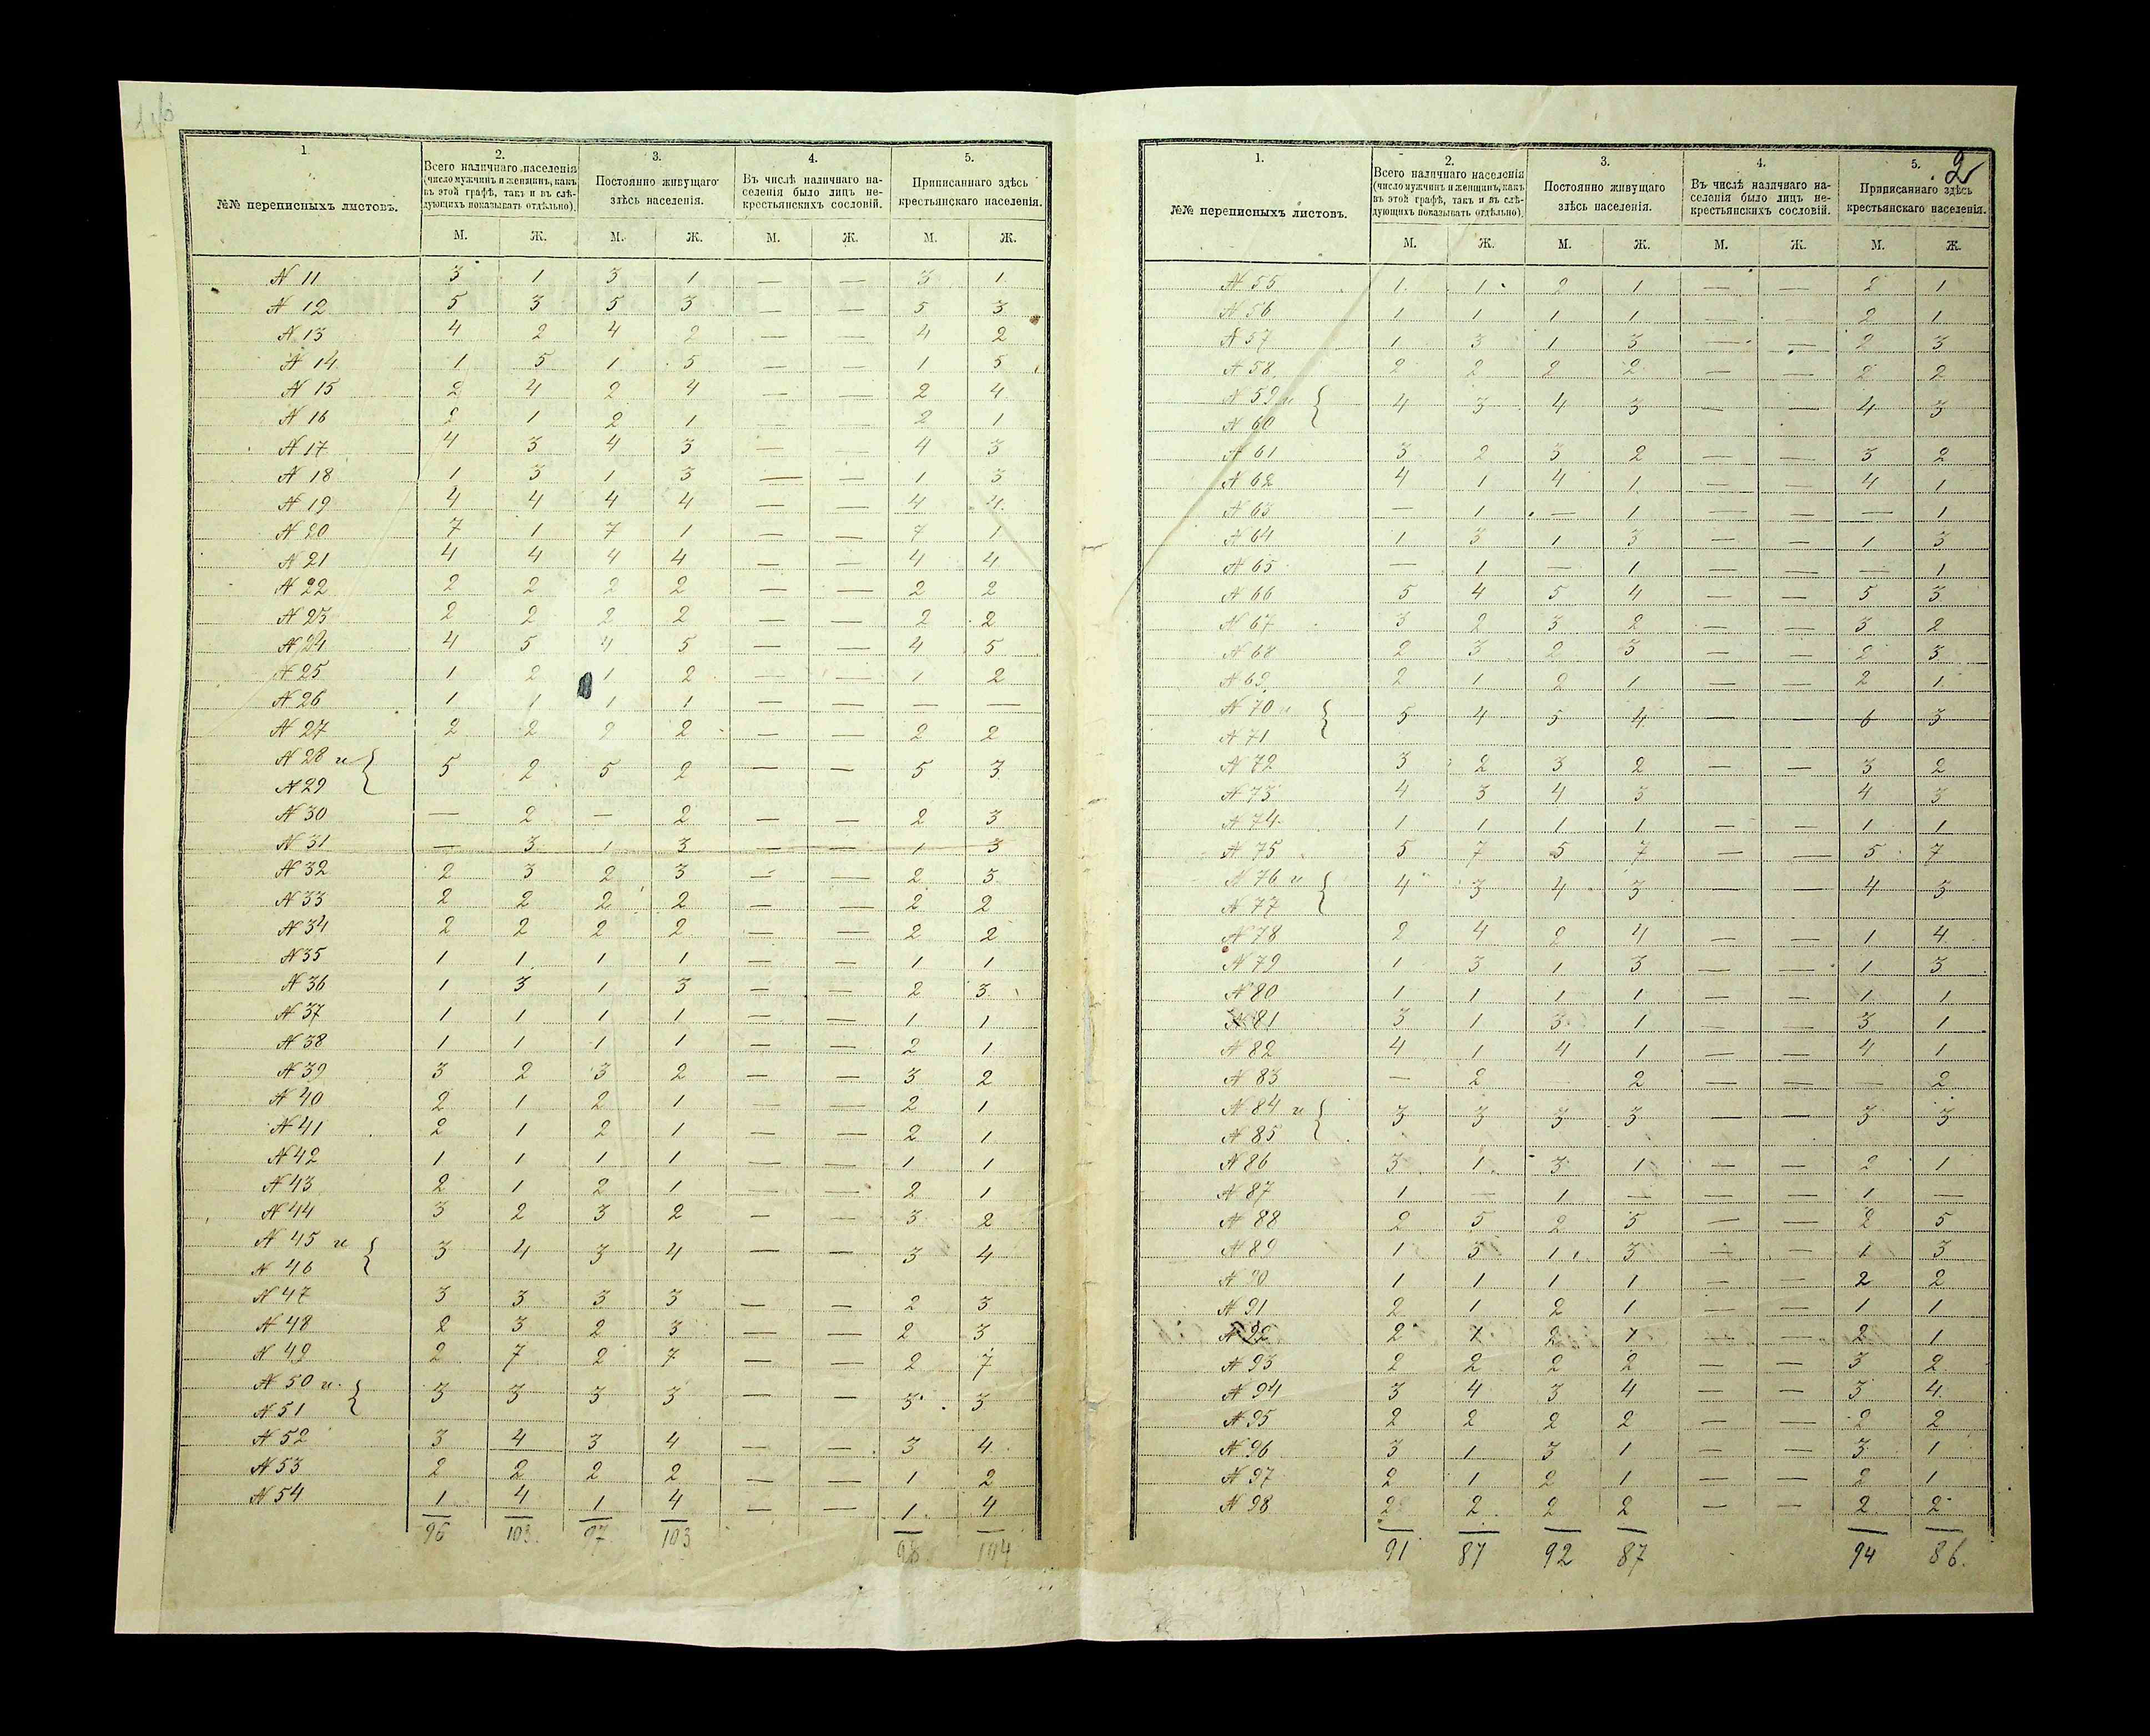 1. 2. 3. 4. 5.
№№ переписныхъ листовъ. Всего наличнаго населенія (число мужчинъ и женщинъ, какъ въ этой графѣ, такъ и въ слѣдующихъ показывать отдѣльно). Постоянно живущаго здѣсь населенія. Въ числѣ наличнаго населенія было лицъ некрестьянскихъ сословій. Приписаннаго здѣсь крестьянскаго населенія.
М. Ж. М. Ж. М. Ж. М. Ж.
№ 11 3 1 3 1 — — 3 1
№ 12 5 3 5 3 — — 5 3
№ 13 4 2 4 2 — — 4 2
№ 14 1 5 1 5 — — 1 5
№ 15 2 4 2 4 — — 2 4
№ 16 2 1 2 1 — — 2 1
№ 17 4 3 4 3 — — 4 3
№ 18 1 3 1 3 — — 1 3
№ 19 4 4 4 4 — — 4 4
№ 20 7 1 7 1 — — 7 1
№ 21 4 4 4 4 — — 4 4
№ 22 2 2 2 2 — — 2 2
№ 23 2 2 2 2 — — 2 2
№ 24 4 5 4 5 — — 4 5
№ 25 1 2 1 2 — — 1 2
№ 26 1 1 1 1 — — — —
№ 27 2 2 2 2 — — 2 2
№ 28 и
№ 29 5 2 5 2 — — 5 3
№ 30 — 2 — 2 — — 2 3
№ 31 — 3 1 3 — — 1 3
№ 32 2 3 2 3 — — 2 3
№ 33 2 2 2 2 — — 2 2
№ 34 2 2 2 2 — — 2 2
№ 35 1 1 1 1 — — 1 1
№ 36 1 3 1 3 — — 2 3
№ 37 1 1 1 1 — — 1 1
№ 38 1 1 1 1 — — 2 1
№ 39 3 2 3 2 — — 3 2
№ 40 2 1 2 1 — — 2 1
№ 41 2 1 2 1 — — 2 1
№ 42 1 1 1 1 — — 1 1
№ 43 2 1 2 1 — — 2 1
№ 44 3 2 3 2 — — 3 2
№ 45 и
№ 46 3 4 3 4 — — 3 4
№ 47 3 3 3 3 — — 2 3
№ 48 2 3 2 3 — — 2 3
№ 49 2 7 2 7 — — 2 7
№ 50 и
№ 51 3 3 3 3 — — 3 3
№ 52 3 4 3 4 — — 3 4
№ 53 2 2 2 2 — — 1 2
№ 54 1 4 1 4 — — 1 4
96 103 97 103 98 104
2
1. 2. 3. 4. 5.
№№ переписныхъ листовъ. Всего наличнаго населенія (число мужчинъ и женщинъ, какъ въ этой графѣ, такъ и въ слѣдующихъ показывать отдѣльно). Постоянно живущаго здѣсь населенія. Въ числѣ наличнаго населенія было лицъ некрестьянскихъ сословій. Приписаннаго здѣсь крестьянскаго населенія.
М. Ж. М. Ж. М. Ж. М. Ж.
№ 55 1 1 2 1 — — 2 1
№ 56 1 1 1 1 — 2 1
№ 57 1 3 1 3 — — 2 3
№ 58 2 2 2 2 — — 2 2
№ 59 и
№ 60 4 3 4 3 — — 4 3
№ 61 3 2 3 2 — — 3 2
№ 62 4 1 4 1 — — 4 1
№ 63 — 1 — 1 — — — 1
№ 64 1 3 1 3 — — 1 3
№ 65 — 1 — 1 — — — 1
№ 66 5 4 5 4 — — 5 3
№ 67 3 2 3 2 — — 3 2
№ 68 2 3 2 3 — — 2 3
№ 69 2 1 2 1 — — 2 1
№ 70 и
№ 71 5 4 5 4 — — 6 3
№ 72 3 2 3 2 — — 3 2
№ 73 4 3 4 3 4 3
№ 74 1 1 1 1 — — 1 1
№ 75 5 7 5 7 — — 5 7
№ 76 и
№ 77 4 3 4 3 — — 4 3
№ 78 2 4 2 4 — — 1 4
№ 79 1 3 1 3 — — 1 3
№ 80 1 1 1 1 — — 1 1
№ 81 3 1 3 1 — — 3 1
№ 82 4 1 4 1 — — 4 1
№ 83 — 2 — 2 — — — 2
№ 84 и
№ 85 3 3 3 3 — — 3 3
№ 86 3 1 3 1 — — 2 1
№ 87 1 — 1 — — — 1 —
№ 88 2 5 2 5 — — 2 5
№ 89 1 3 1 3 — — 1 3
№ 90 1 1 1 1 — — 2 2
№ 91 2 1 2 1 — — 1 1
№ 92 2 1 2 1 — — 2 1
№ 93 2 2 2 2 — — 3 2
№ 94 3 4 3 4 — — 3 4
№ 95 2 2 2 2 — — 2 2
№ 96 3 1 3 1 — — 3 1
№ 97 2 1 2 1 — — 2 1
№ 98 2 2 2 2 — — 2 2
91 87 92 87 94 86.